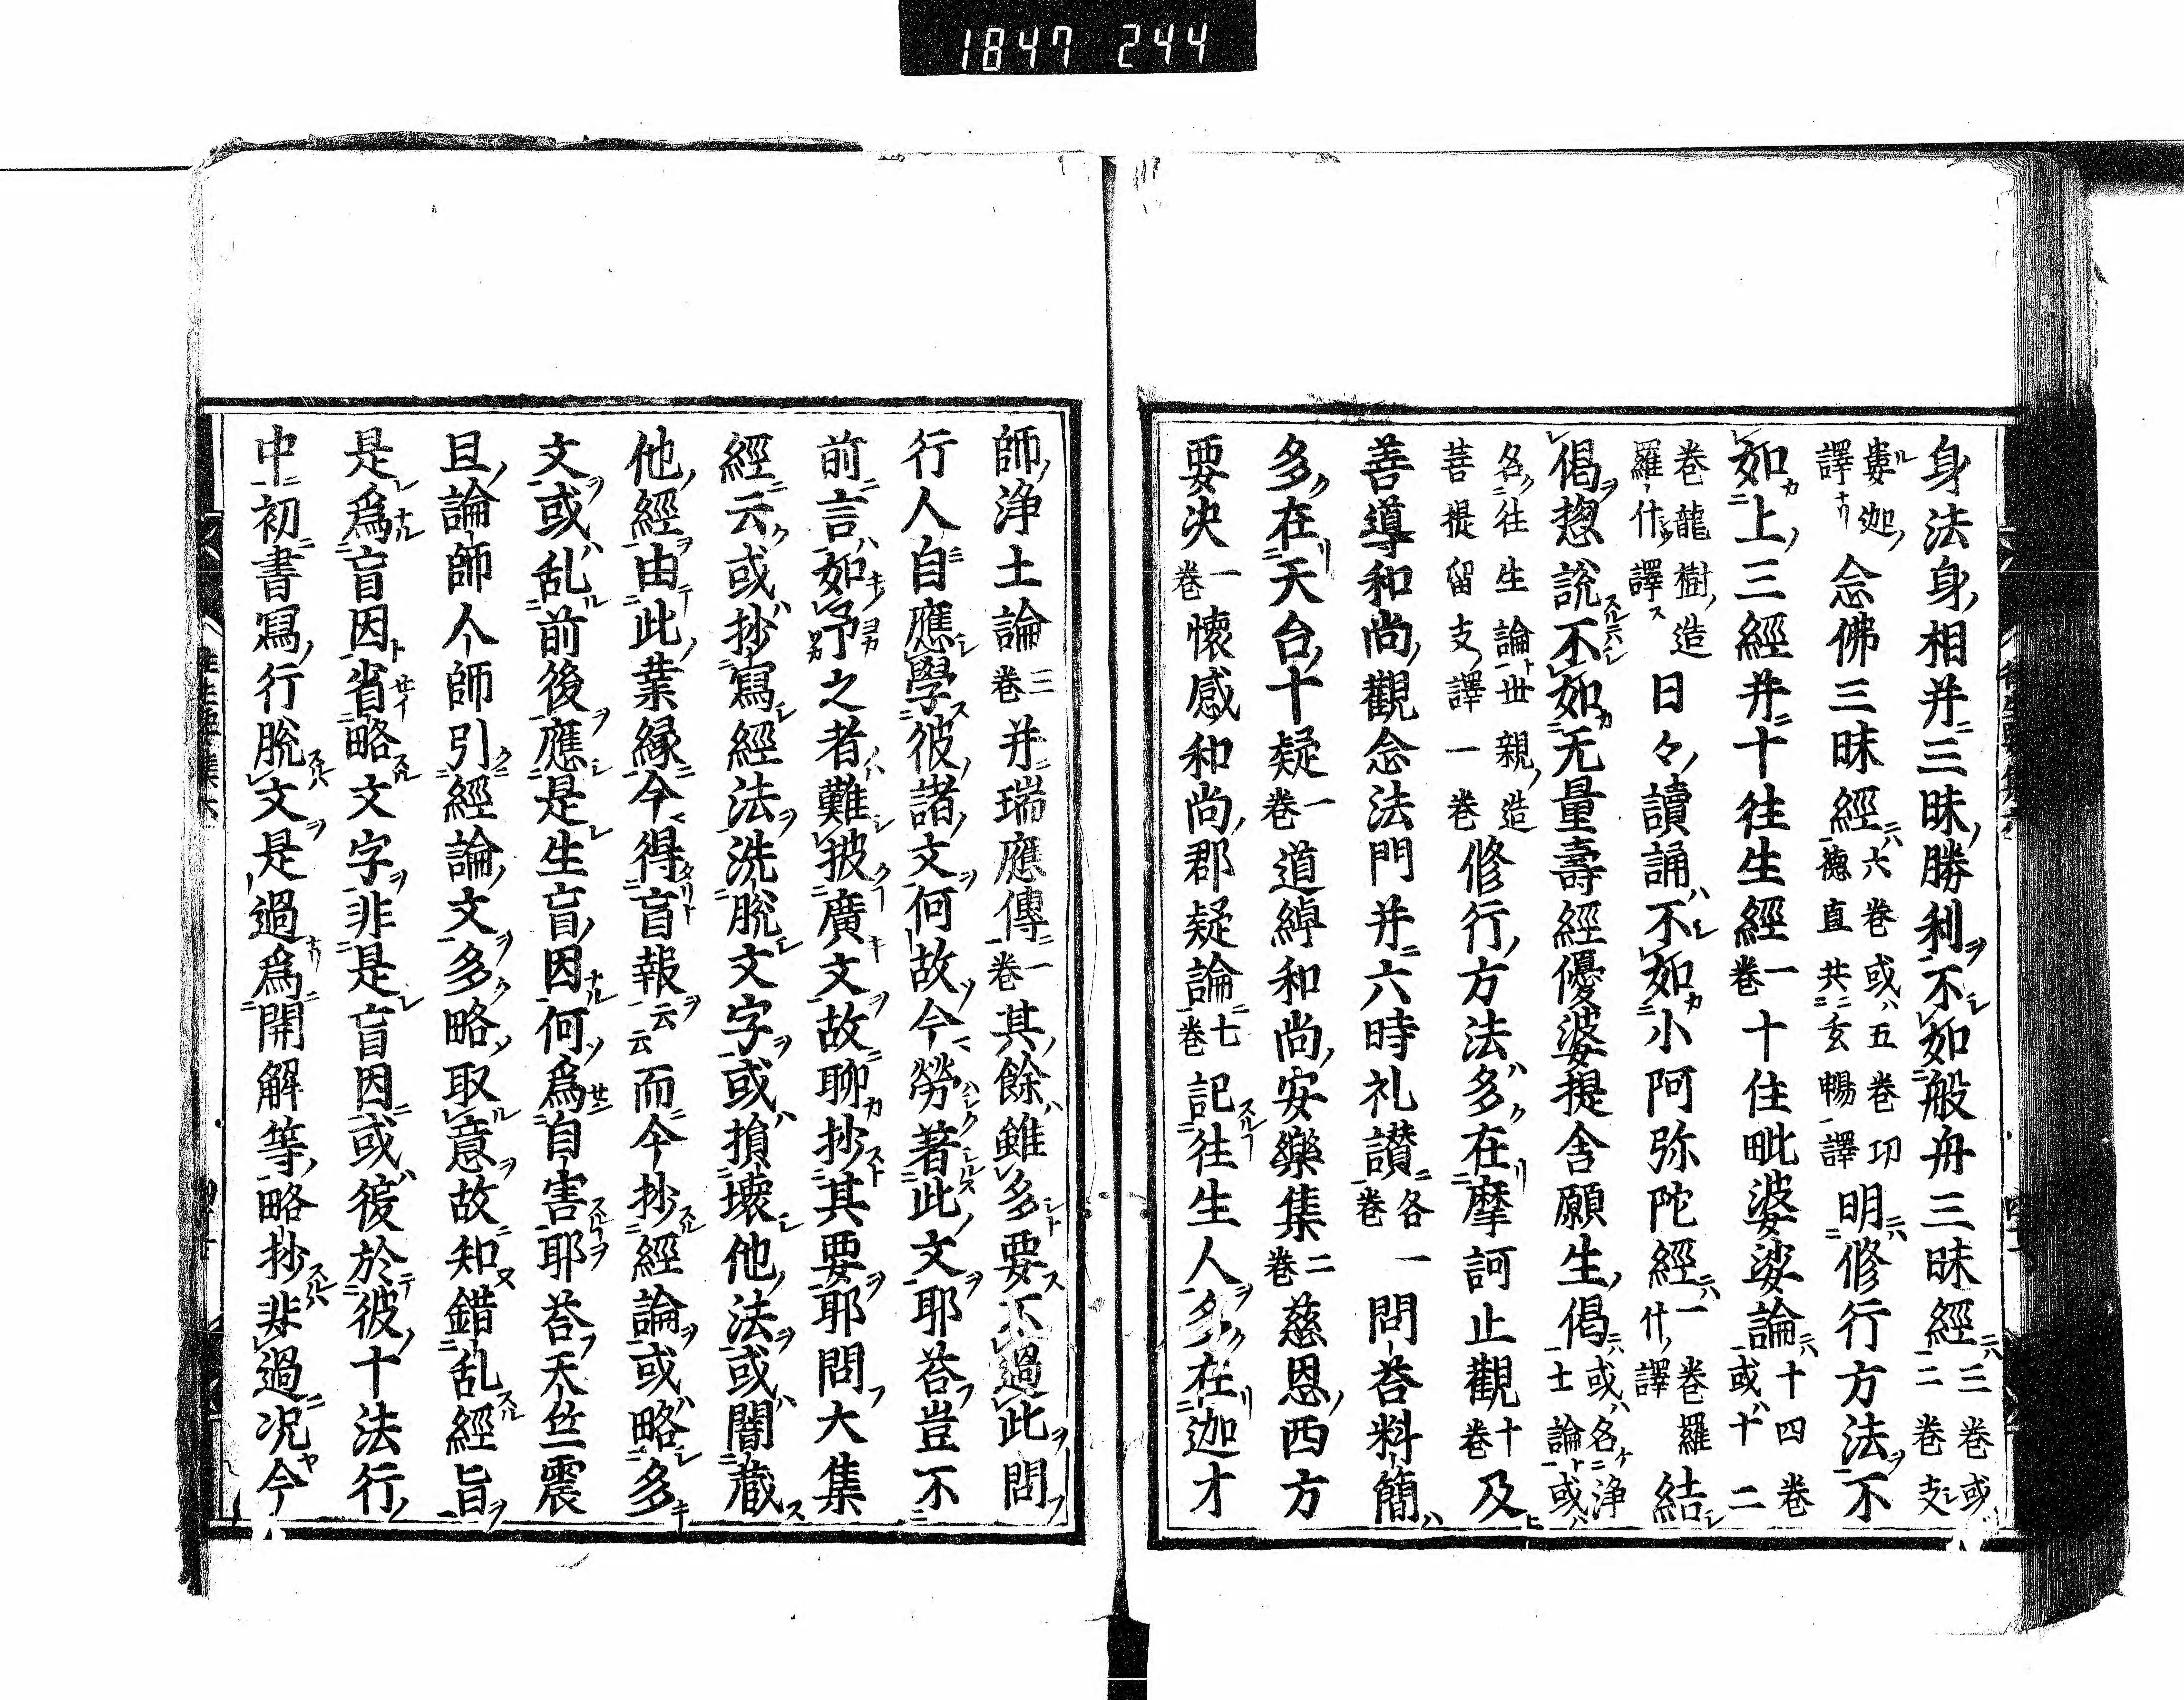 1847 244
身法身相并三昧勝利不如般舟三昧經三卷或二卷支
婁迦譯念佛三昧經六卷或五卷功德直共玄暢譯明修行方法不
如上三經并十往生經一卷十住毗婆娑論十四卷或十二
卷龍樹造羅什譯日々讀誦不如小阿弥陀經一卷羅什譯結
偈惣說不如无量壽經優婆提舍願生偈或各浄土論或
各往生論世親造菩提留支譯一卷修行方法多在摩訶止觀十卷及
善導和尚觀念法門并六時礼讃各一卷問荅料簡
多在天台十疑一卷道綽和尚安樂集二卷慈恩西方
要決一卷懷感和尚郡疑論七卷記往生人多在迦才
師浄土論三卷并瑞應傳一卷其餘雖多要不過此問
行人自應學彼諸文何故今勞著此文耶荅豈不
前言如予之者難披廣文故聊抄其要耶問大集
經云或抄寫經法洗脫文字或損壞他法或闇蔵
他經由此業緣今得盲報云云而今抄經論或略多
文或乱前後應是生盲因何爲自害耶荅天竺震
旦論師人師引經論文多略取意故知錯乱經旨
是爲盲因省略文字非是盲因或復於彼十法行
中初書寫行脫文是過爲開解等略抄非過況今